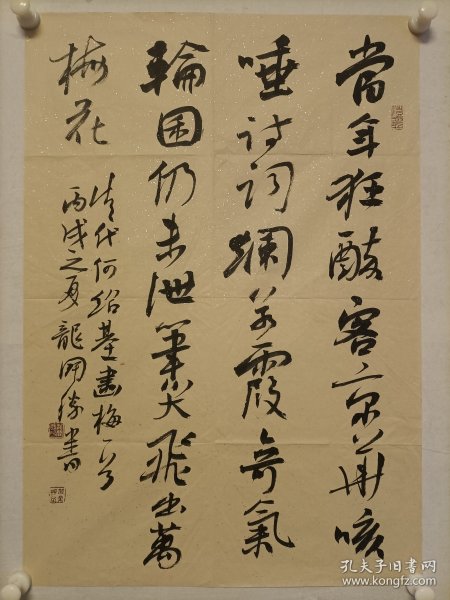 當年狂醉客京華咳
唾詩詞爛若霞奇氣
輪囷仍未泄筆尖飛出萬
梅花
清代何紹基畫梅一首
丙戌之夏龍開勝書
孔夫子旧书网
www.kongfz.com